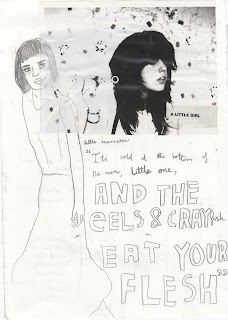 A LITTLE GIRL
"Its cold at the bottom of
the river, little one,
AND THE
eels & CRAYfish
EAT YOUR
FLESH"